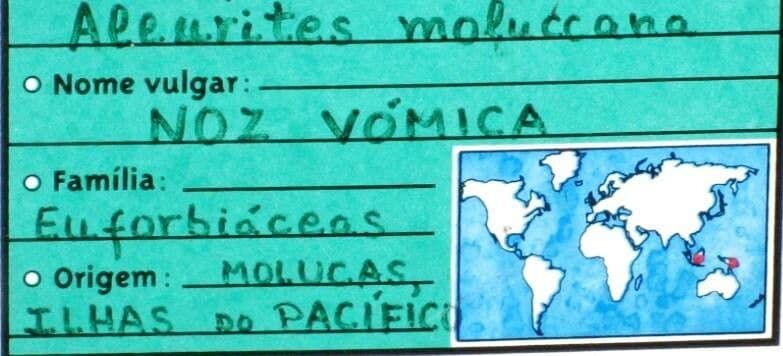 Aleurites moluccana
Nome vulgar:
NOZ VÓMICA
Família:
Euforbiáceas
Origem: MOLUCAS,
ILHAS DO PACÍFICO